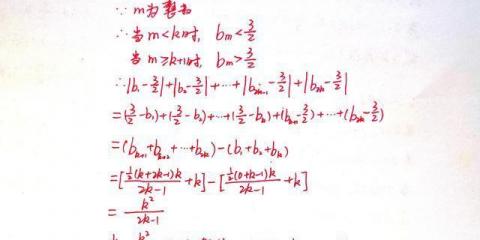 ∵ m为整数
∴ 当 m<k时, bₘ<3/2
当 m≥k+1时, bₘ>3/2
∴|b₁-3/2|+|b₂-3/2|+…+|b₂ₖ₋₁-3/2|+|b₂ₖ-3/2|
=(3/2-b₁)+(3/2-b₂)+…+(3/2-bₖ)+(bₖ₊₁-3/2)+…+(b₂ₖ-3/2)
=(bₖ₊₁+bₖ₊₂+…+b₂ₖ)-(b₁+b₂+bₖ)
=[½(k+2k-1)k/(2k-1)+k]-[½(0+k-1)k/(2k-1)+k]
=k²/(2k-1)